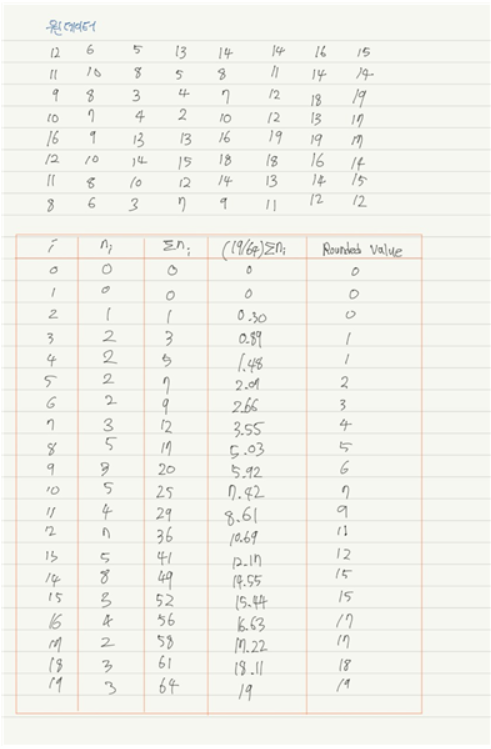 12 6 5 13 14 14 16 15
11 10 8 5 8 11 14 14
9 8 3 4 7 12 18 19
10 7 4 2 10 12 13 17
16 9 13 13 16 19 19 17
12 10 14 15 18 18 16 14
11 8 10 12 14 13 14 15
8 6 3 7 9 11 12 12
i n_i Σn_i (19/64)Σn_i Rounded Value
0 0 0 0 0
1 0 0 0 0
2 1 1 0.30 0
3 2 3 0.89 1
4 2 5 1.48 1
5 2 7 2.09 2
6 2 9 2.66 3
7 3 12 3.55 4
8 5 17 5.03 5
9 3 20 5.92 6
10 5 25 7.42 7
11 4 29 8.61 9
12 7 36 10.69 11
13 5 41 12.17 12
14 8 49 14.55 15
15 3 52 15.44 15
16 4 56 16.63 17
17 2 58 17.22 17
18 3 61 18.11 18
19 3 64 19 19